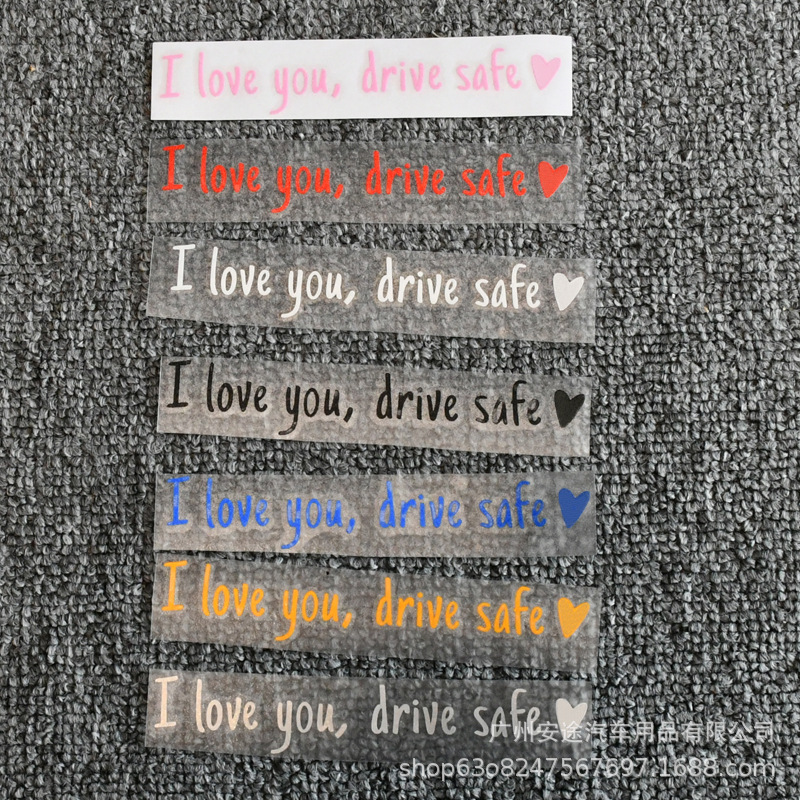 I love you, drive safe
I love you, drive safe
I love you, drive safe
I love you, drive safe
I love you, drive safe
I love you, drive safe
I love you, drive safe
广州安途汽车用品有限公司
shop63o8247567697.1688.com